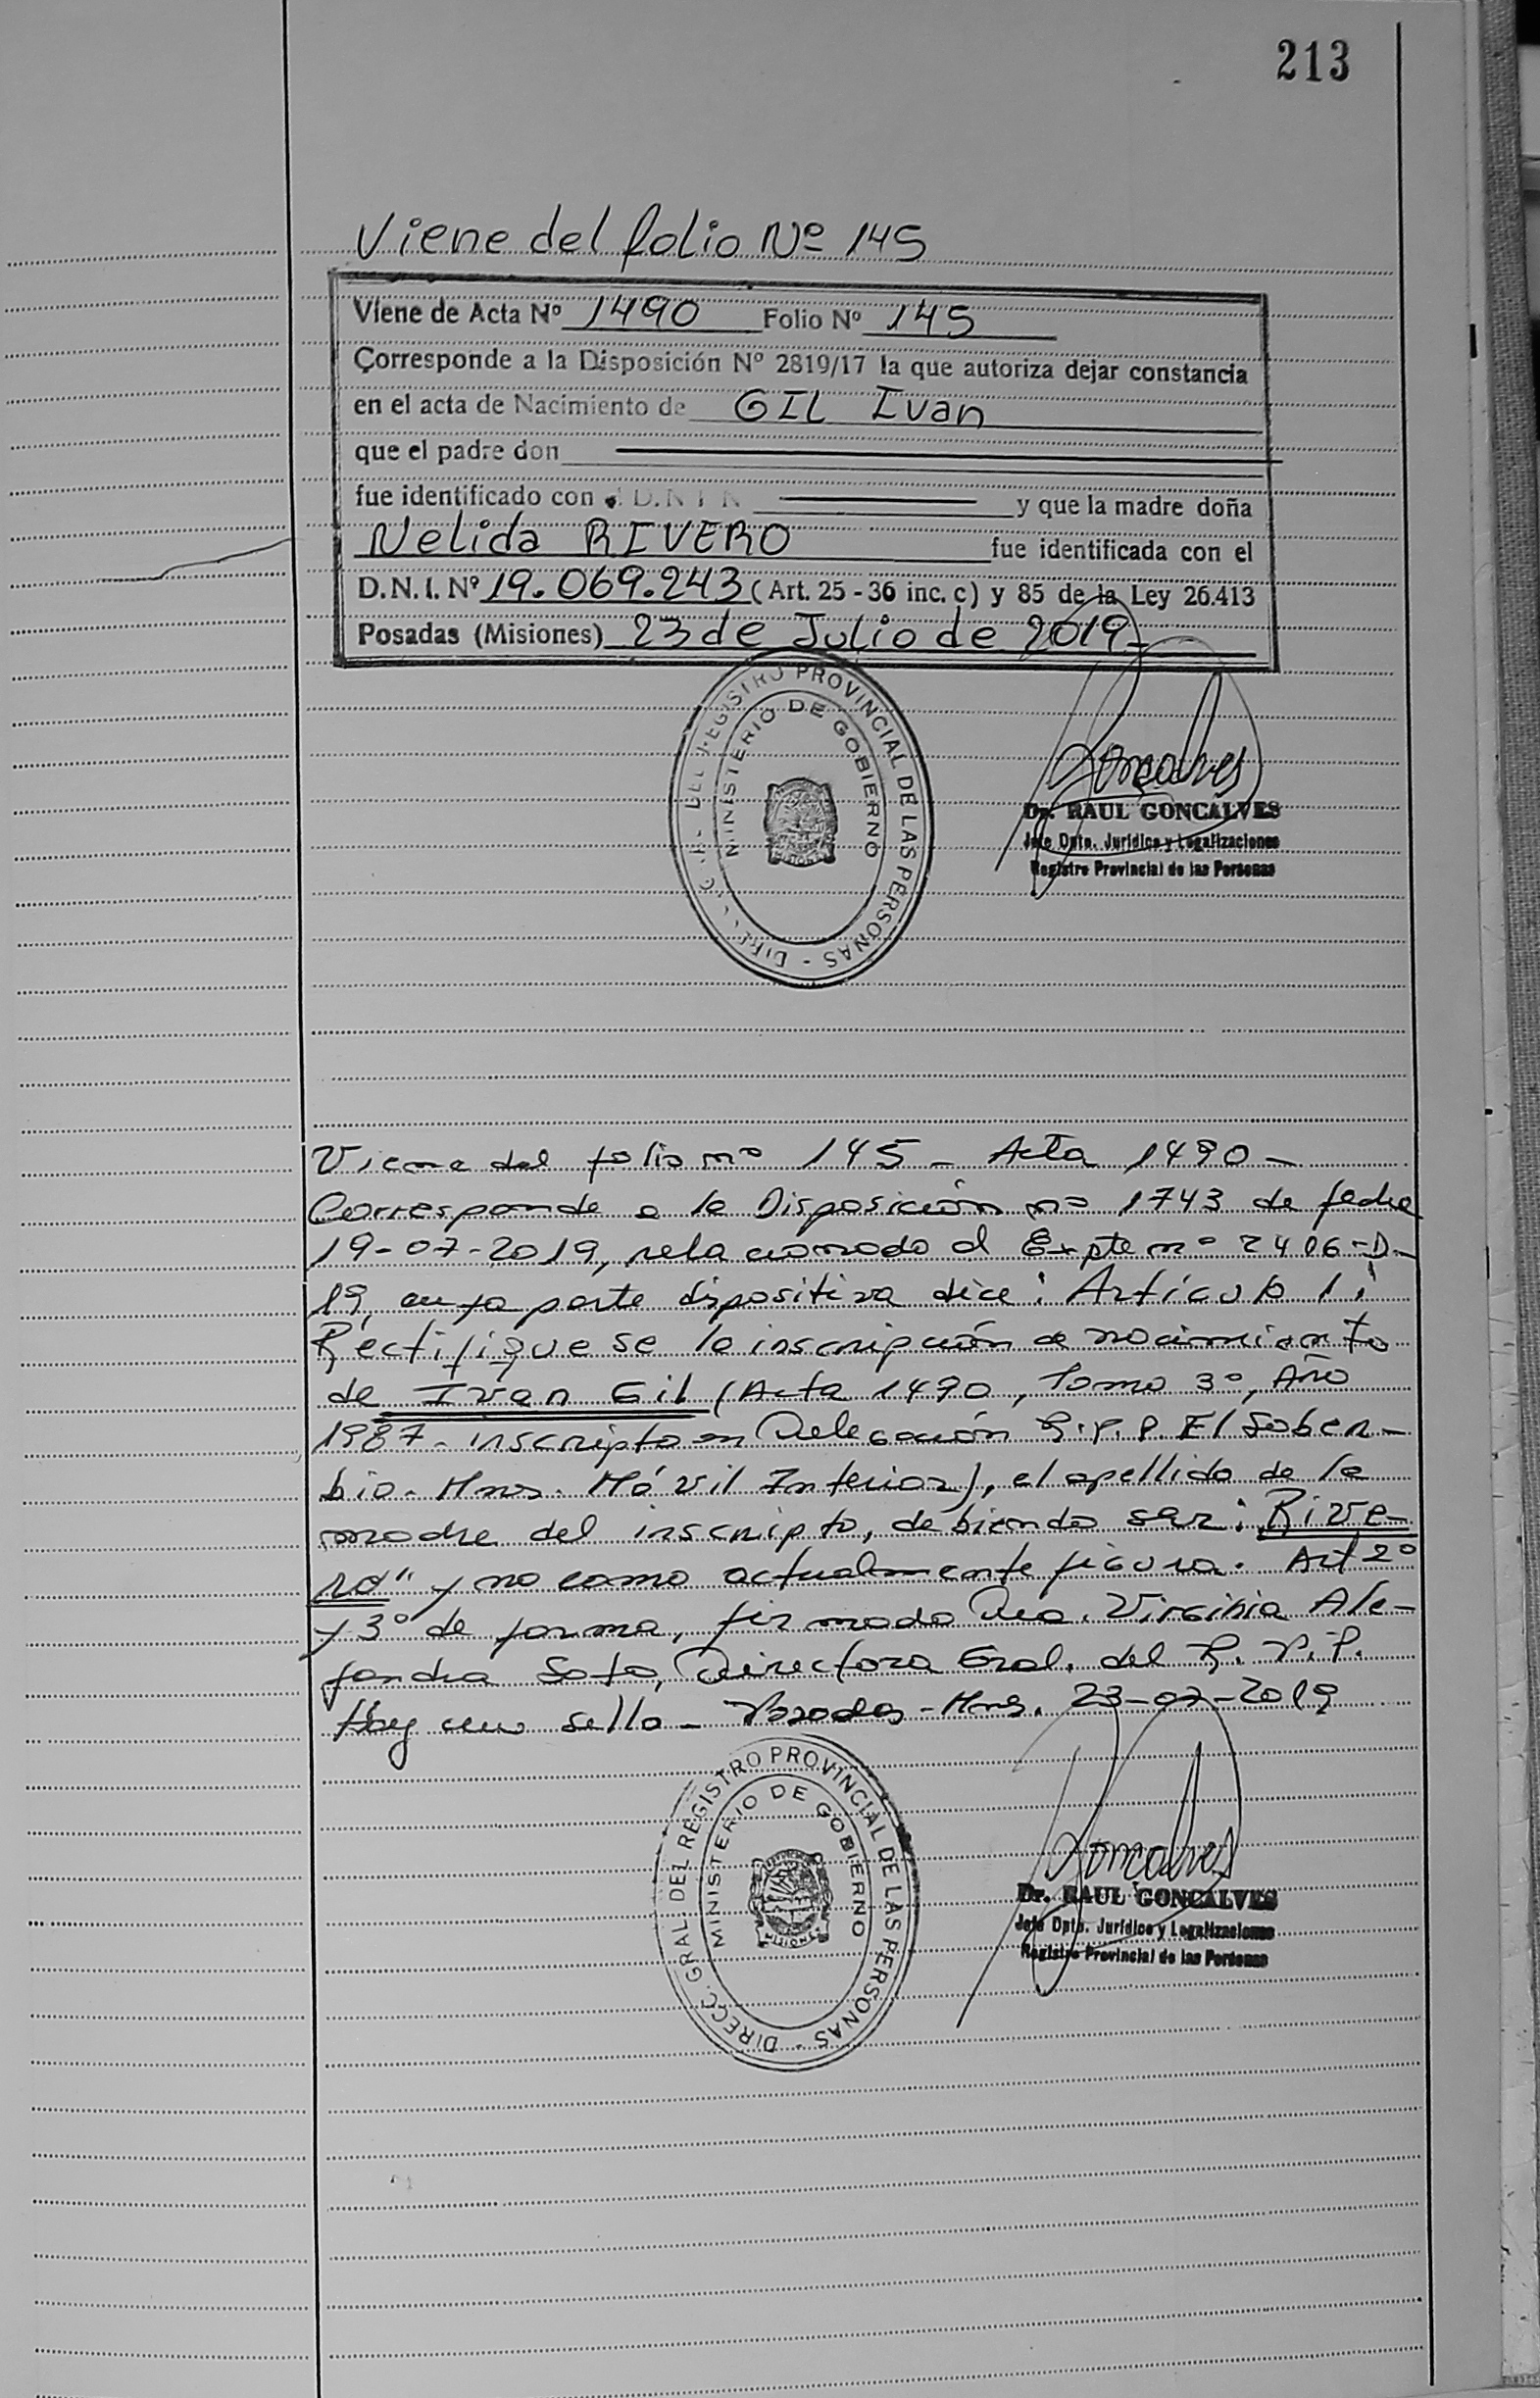 213
Viene del folio Nº 145
Viene de Acta Nº 1490 Folio Nº 145
Corresponde a la Disposición Nº 2819/17 la que autoriza dejar constancia
en el acta de Nacimiento de GIL Ivan
que el padre don
fue identificado con D.N.I N y que la madre doña
Nelida RIVERO fue identificada con el
D.N.I. Nº 19.069.243 (Art. 25 - 36 inc. c) y 85 de la Ley 26.413
Posadas (Misiones) 23 de Julio de 2019
DEL REGISTRO PROVINCIAL DE LAS PERSONAS -
MINISTERIO DE GOBIERNO
Goncalves
Dr. RAUL GONCALVES
Jefe Dpto. Jurídico y Legalizaciones
Registro Provincial de las Personas
Viene del folio nº 145 - Acta 1490 -
Corresponde a la Disposición nº 1743 de fecha
19-07-2019, relacionado al Expte nº 2406-D-
19, cuya parte dispositiva dice: Artículo 1:
Rectifíquese la inscripción de nacimiento
de Ivan Gil (Acta 1490, Tomo 3º, Año
1987 - inscripto en Delegación R.P.P El Sober-
bio. Mns. Móvil Interior), el apellido de la
madre del inscripto, debiendo ser: Rive-
ro" y no como actualmente figura. Art 2º
y 3º de forma, firmado Dra. Virginia Ale-
jandra Soto, Directora Gral. del R. P. P.
Hay un sello - Posadas - Mns. 23-07-2019
DIRECC. GRAL. DEL REGISTRO PROVINCIAL DE LAS PERSONAS -
MINISTERIO DE GOBIERNO
MISIONES
Goncalves
Dr. RAUL GONCALVES
Jefe Dpto. Jurídico y Legalizaciones
Registro Provincial de las Personas